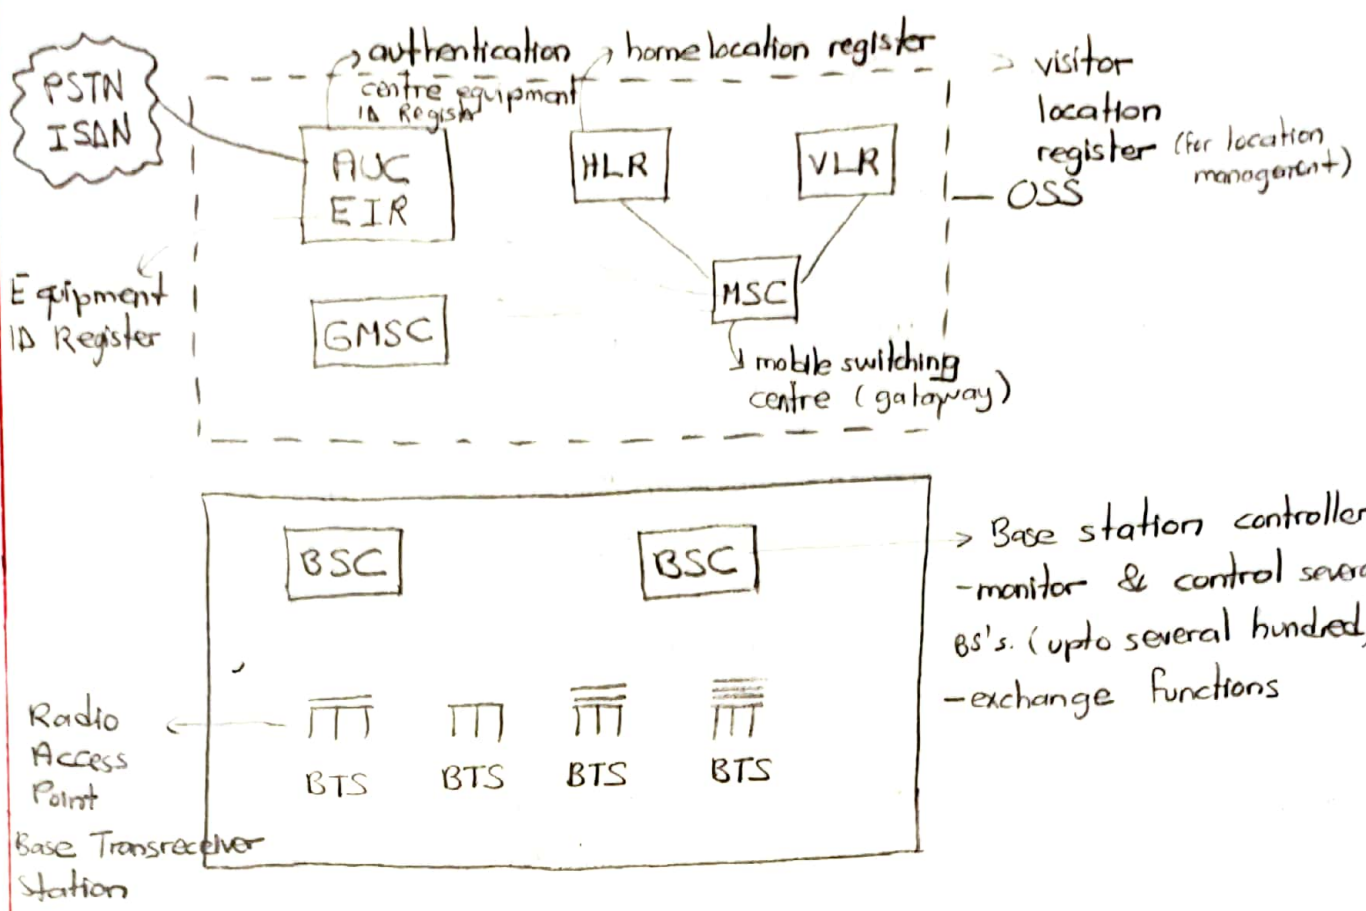 authentication
centre equipment
ID Register
home location register
visitor
location
register (for location
management)
OSS
PSTN
ISDN
AUC
EIR
HLR
VLR
MSC
GMSC
Equipment
ID Register
mobile switching
centre (gateway)
BSC
BSC
Base station controller
-monitor & control
BS's. (upto several hundred)
-exchange functions
Radio
Access
Point
Base Transreceiver
Station
BTS
BTS
BTS
BTS